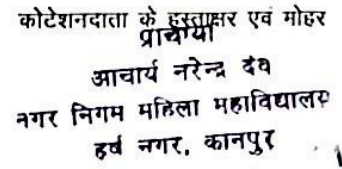 कोटेशनदाता के हस्ताक्षर एवं मोहर
प्राचार्या
आचार्य नरेन्द्र देव
नगर निगम महिला महाविद्यालय
हर्ष नगर, कानपुर